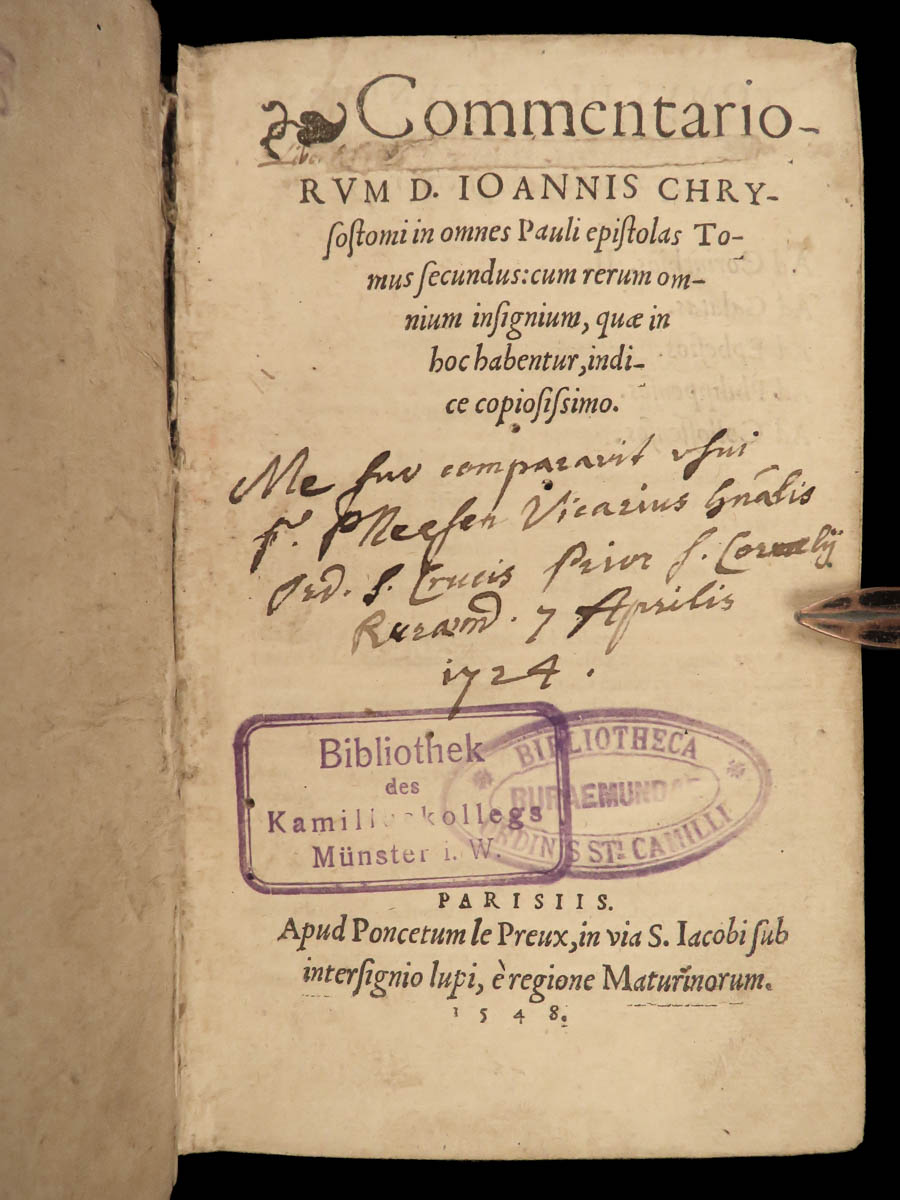 Commentario-
RVM D. IOANNIS CHRY-
ſoſtomi in omnes Pauli epiſtolas To-
mus ſecundus: cum rerum om-
nium inſignium, quæ in
hoc habentur, indi-
ce copioſiſsimo.
Me suo comparavit usui
Vicarius Gñalis
Ord. S. Crucis Prior S. Cornelij
Ruræmd. 7 Aprilis
1724.
Bibliothek
des
Kamilluskollegs
Münster i. W.
BIBLIOTHECA
RURAEMUNDAE
ORDINIS STI CAMILLI
PARISIIS.
Apud Poncetum le Preux, in via S. Iacobi ſub
interſignio lupi, è regione Maturinorum.
1548.